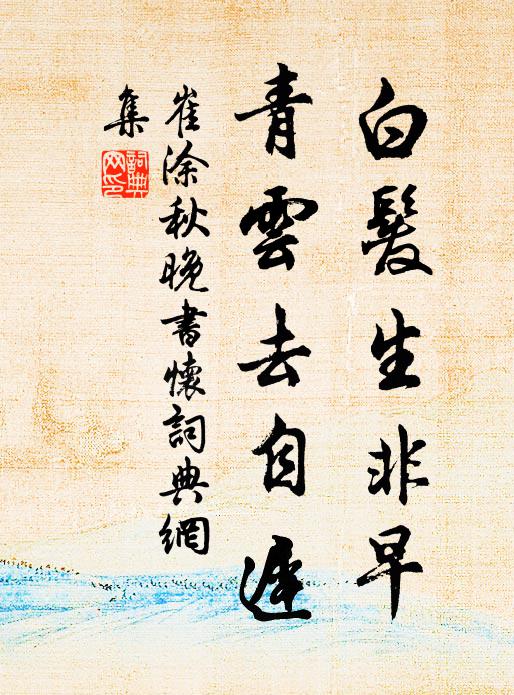 白髮生非早
青雲去自遲
崔涂秋晚書懷詞典網
集
詞典网印